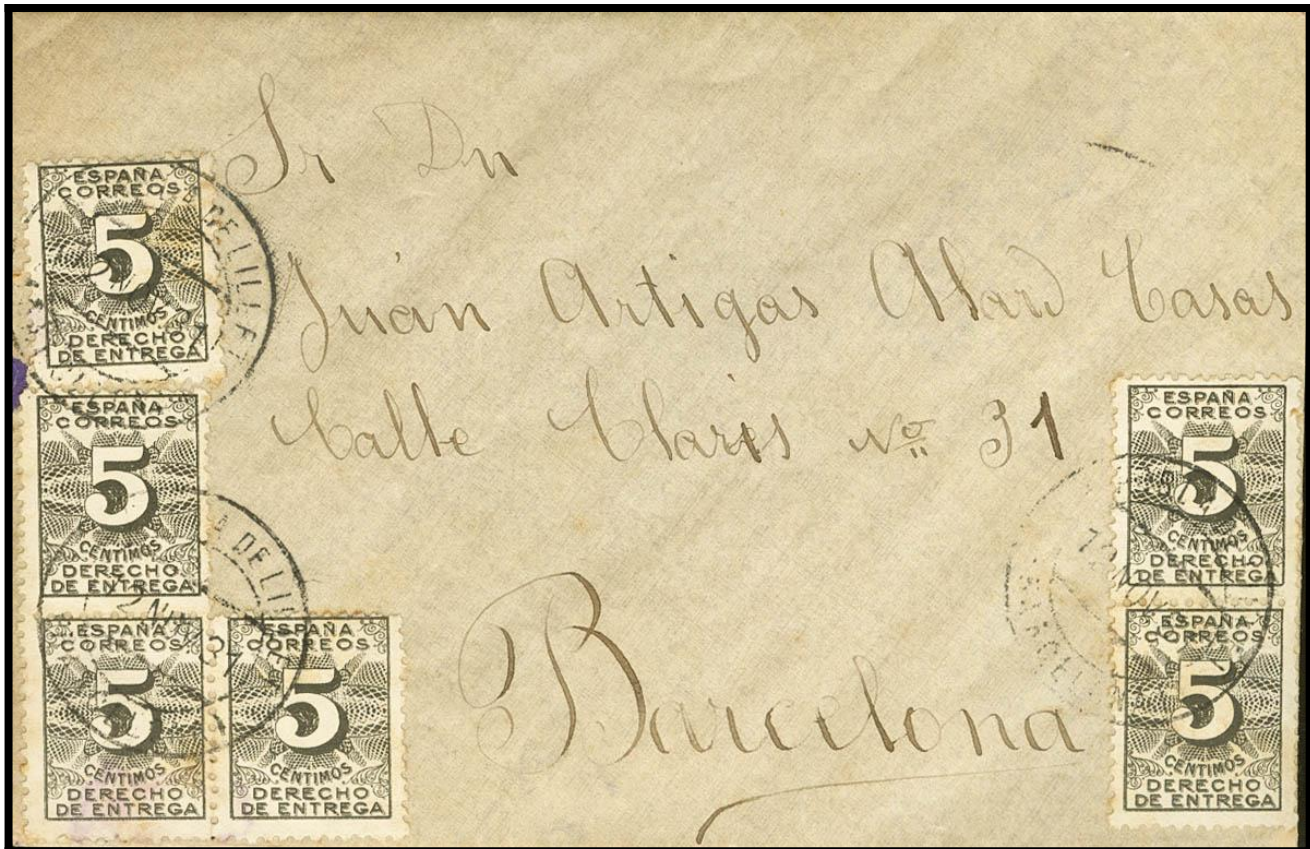 Sr Dn
Juán Artigas Alard Casas
Calle Claris Nº 31
Barcelona
ESPAÑA
CORREOS
5
CENTIMOS
DERECHO
DE ENTREGA
ESPAÑA
CORREOS
5
CENTIMOS
DERECHO
DE ENTREGA
ESPAÑA
CORREOS
5
CENTIMOS
DERECHO
DE ENTREGA
ESPAÑA
CORREOS
5
CENTIMOS
DERECHO
DE ENTREGA
ESPAÑA
CORREOS
5
CENTIMOS
DERECHO
DE ENTREGA
ESPAÑA
CORREOS
5
CENTIMOS
DERECHO
DE ENTREGA